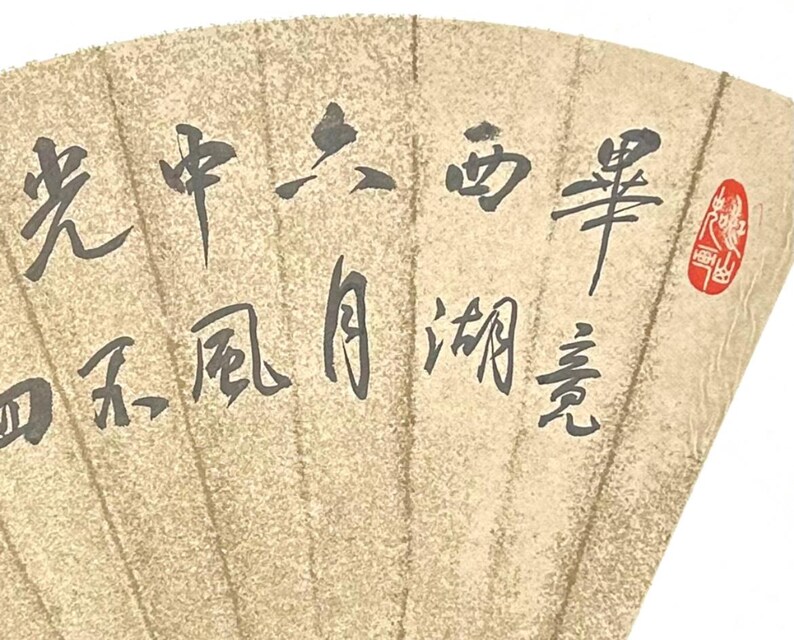 畢竟
西湖
六月
中風
光不
四